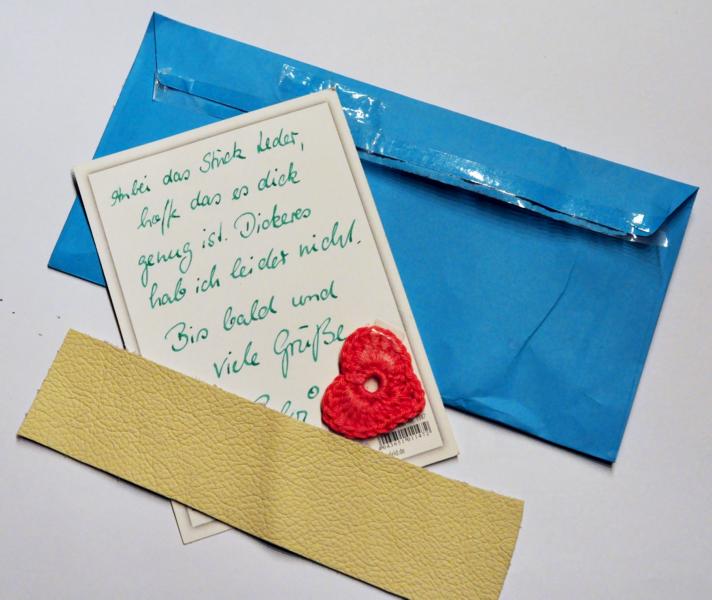 Anbei das Stück Leder,
hoffe das es dick
genug ist. Dickeres
hab ich leider nicht.
Bis bald und
viele Grüße